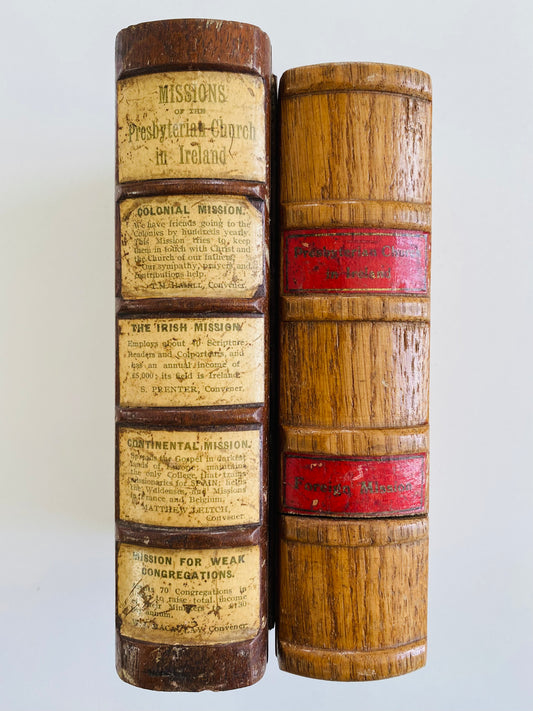 MISSIONS
OF THE
Presbyterian Church
in Ireland
COLONIAL MISSION.
We have friends going to the
Colonies by hundreds yearly.
This Mission tries to keep
them in touch with Christ and
the Church of our fathers.
Our sympathy, prayers, and
contributions help.
Convener.
THE IRISH MISSION
Employs about 40 Scripture
Readers and Colporteurs, and
has an annual income of
£5,000; its field is Ireland.
S. PRENTER, Convener.
CONTINENTAL MISSION.
Spreads the Gospel in darkest
lands of Europe; maintains
the only College that trains
Missionaries for SPAIN; helps
the Waldenses, and Missions
in France and Belgium.
MATTHEW LEITCH,
Convener.
MISSION FOR WEAK
CONGREGATIONS.
70 Congregations in
to raise total income
Ministers to £130
annum.
Convener.
Presbyterian Church
in Ireland
Foreign Mission